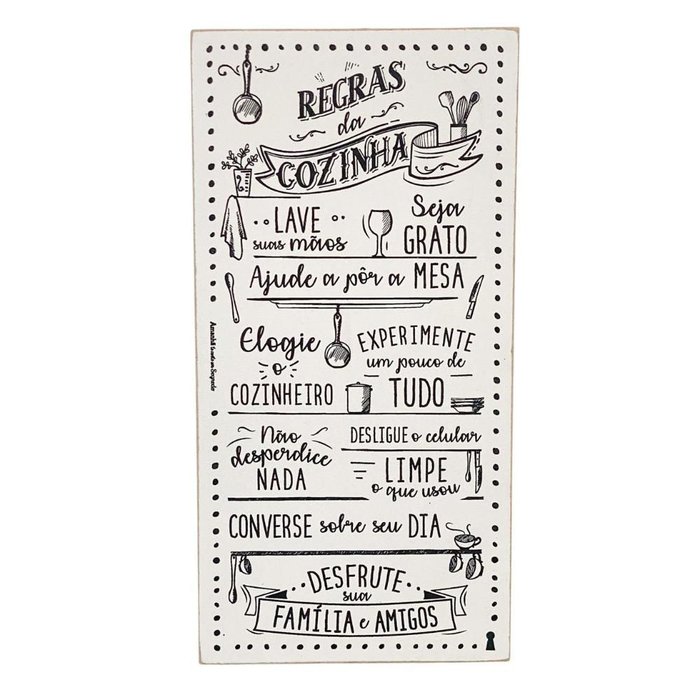 REGRAS
da
COZINHA
LAVE
suas mãos
Seja
GRATO
Ajude a pôr a MESA
Elogie
o
COZINHEIRO
EXPERIMENTE
um pouco de
TUDO
Não
desperdice
NADA
DESLIGUE o celular
LIMPE
o que usou
CONVERSE sobre seu DIA
DESFRUTE
sua
FAMÍLIA e AMIGOS